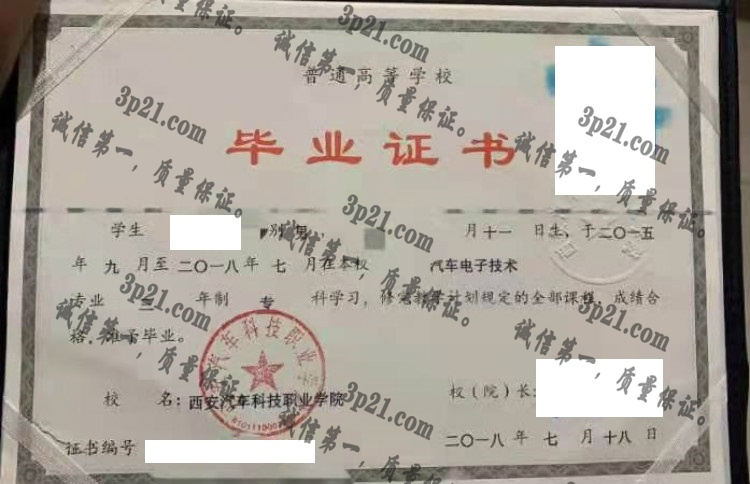 普通高等学校
毕业证书
学生 别 男, 月十一 日生, 于二〇一五
年 九 月至二〇一八年 七 月在本校 汽车电子技术
专业 三 年制 专 科学习, 修完教学计划规定的全部课程, 成绩合
格, 准予毕业。
校 名: 西安汽车科技职业学院
校 (院) 长:
证书编号
二〇一八 年 七 月 十八 日
汽车科技职业学
3p21.com
诚信第一,质量保证。
3p21.com
诚信第一,质量保证。
3p21.com
诚信第一,质量保证。
3p21.com
诚信第一,质量保证。
3p21.com
诚信第一,质量保证。
3p21.com
诚信第一,质量保证。
3p21.com
诚信第一,质量保证。
3p21.com
诚信第一,质量保证。